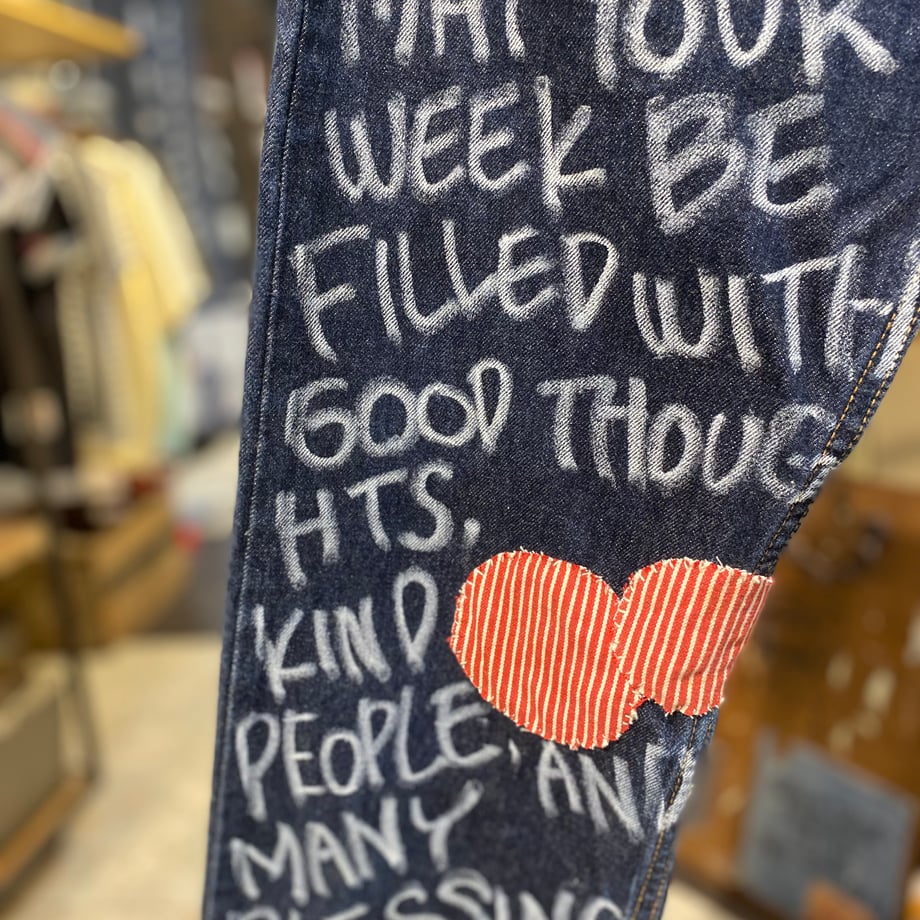 MAY YOUR
WEEK BE
FILLED WITH
GOOD THOUG
HTS,
KIND
PEOPLE, AND
MANY
BLESSING